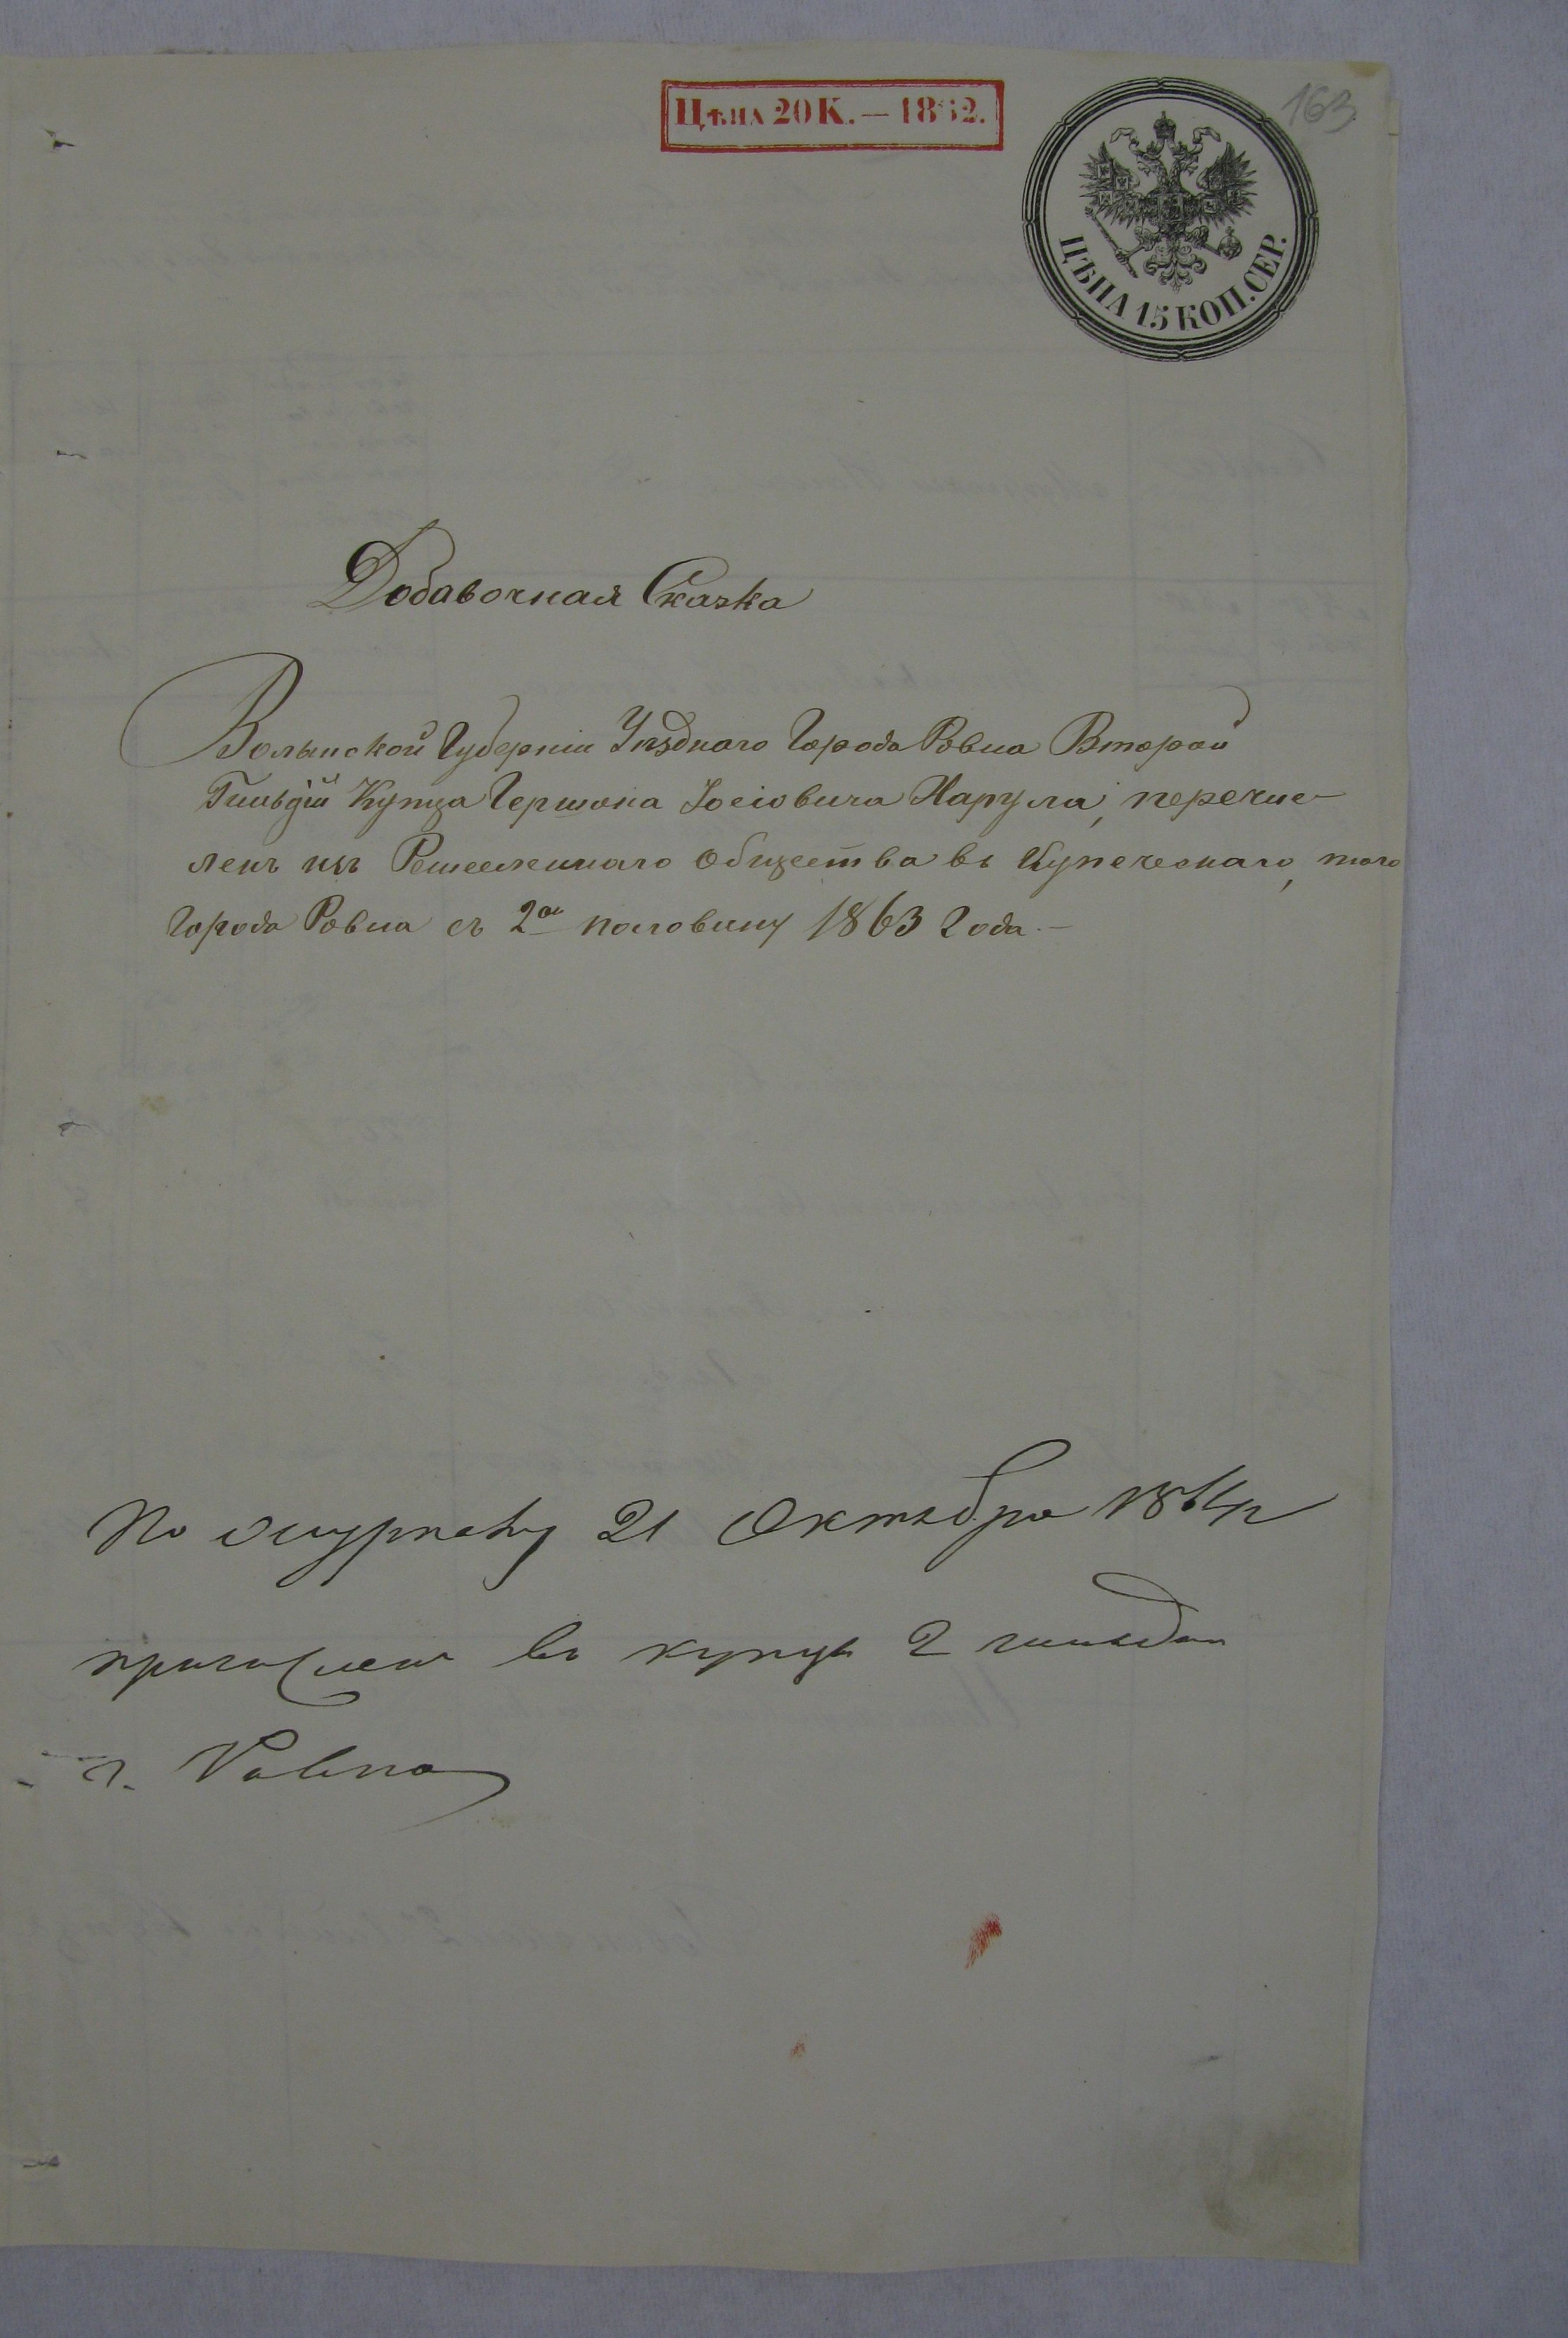 163
Цѣна 20 К. — 1862.
ЦѢНА 15 КОП. СЕР.
Добавочная Сказка
Волынской Губерніи Уѣзднаго Города Ровна Второй
Гильдіи Купца Гершона Іосіовича Харула, перечис-
ленъ изъ Общества въ Купеческаго, того
Города Ровна съ 2ой половину 1863 Года.—
По журналу 21 Октября
причисленъ въ купцы 2 гильдіи
г. Ровно